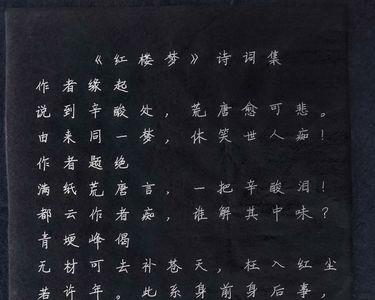 《红楼梦》诗词集
作者缘起
说到辛酸处，荒唐愈可悲。
由来同一梦，休笑世人痴！
作者题绝
满纸荒唐言，一把辛酸泪！
都云作者痴，谁解其中味？
青埂峰偈
无材可去补苍天，枉入红尘
若许年。此系身前身后事，